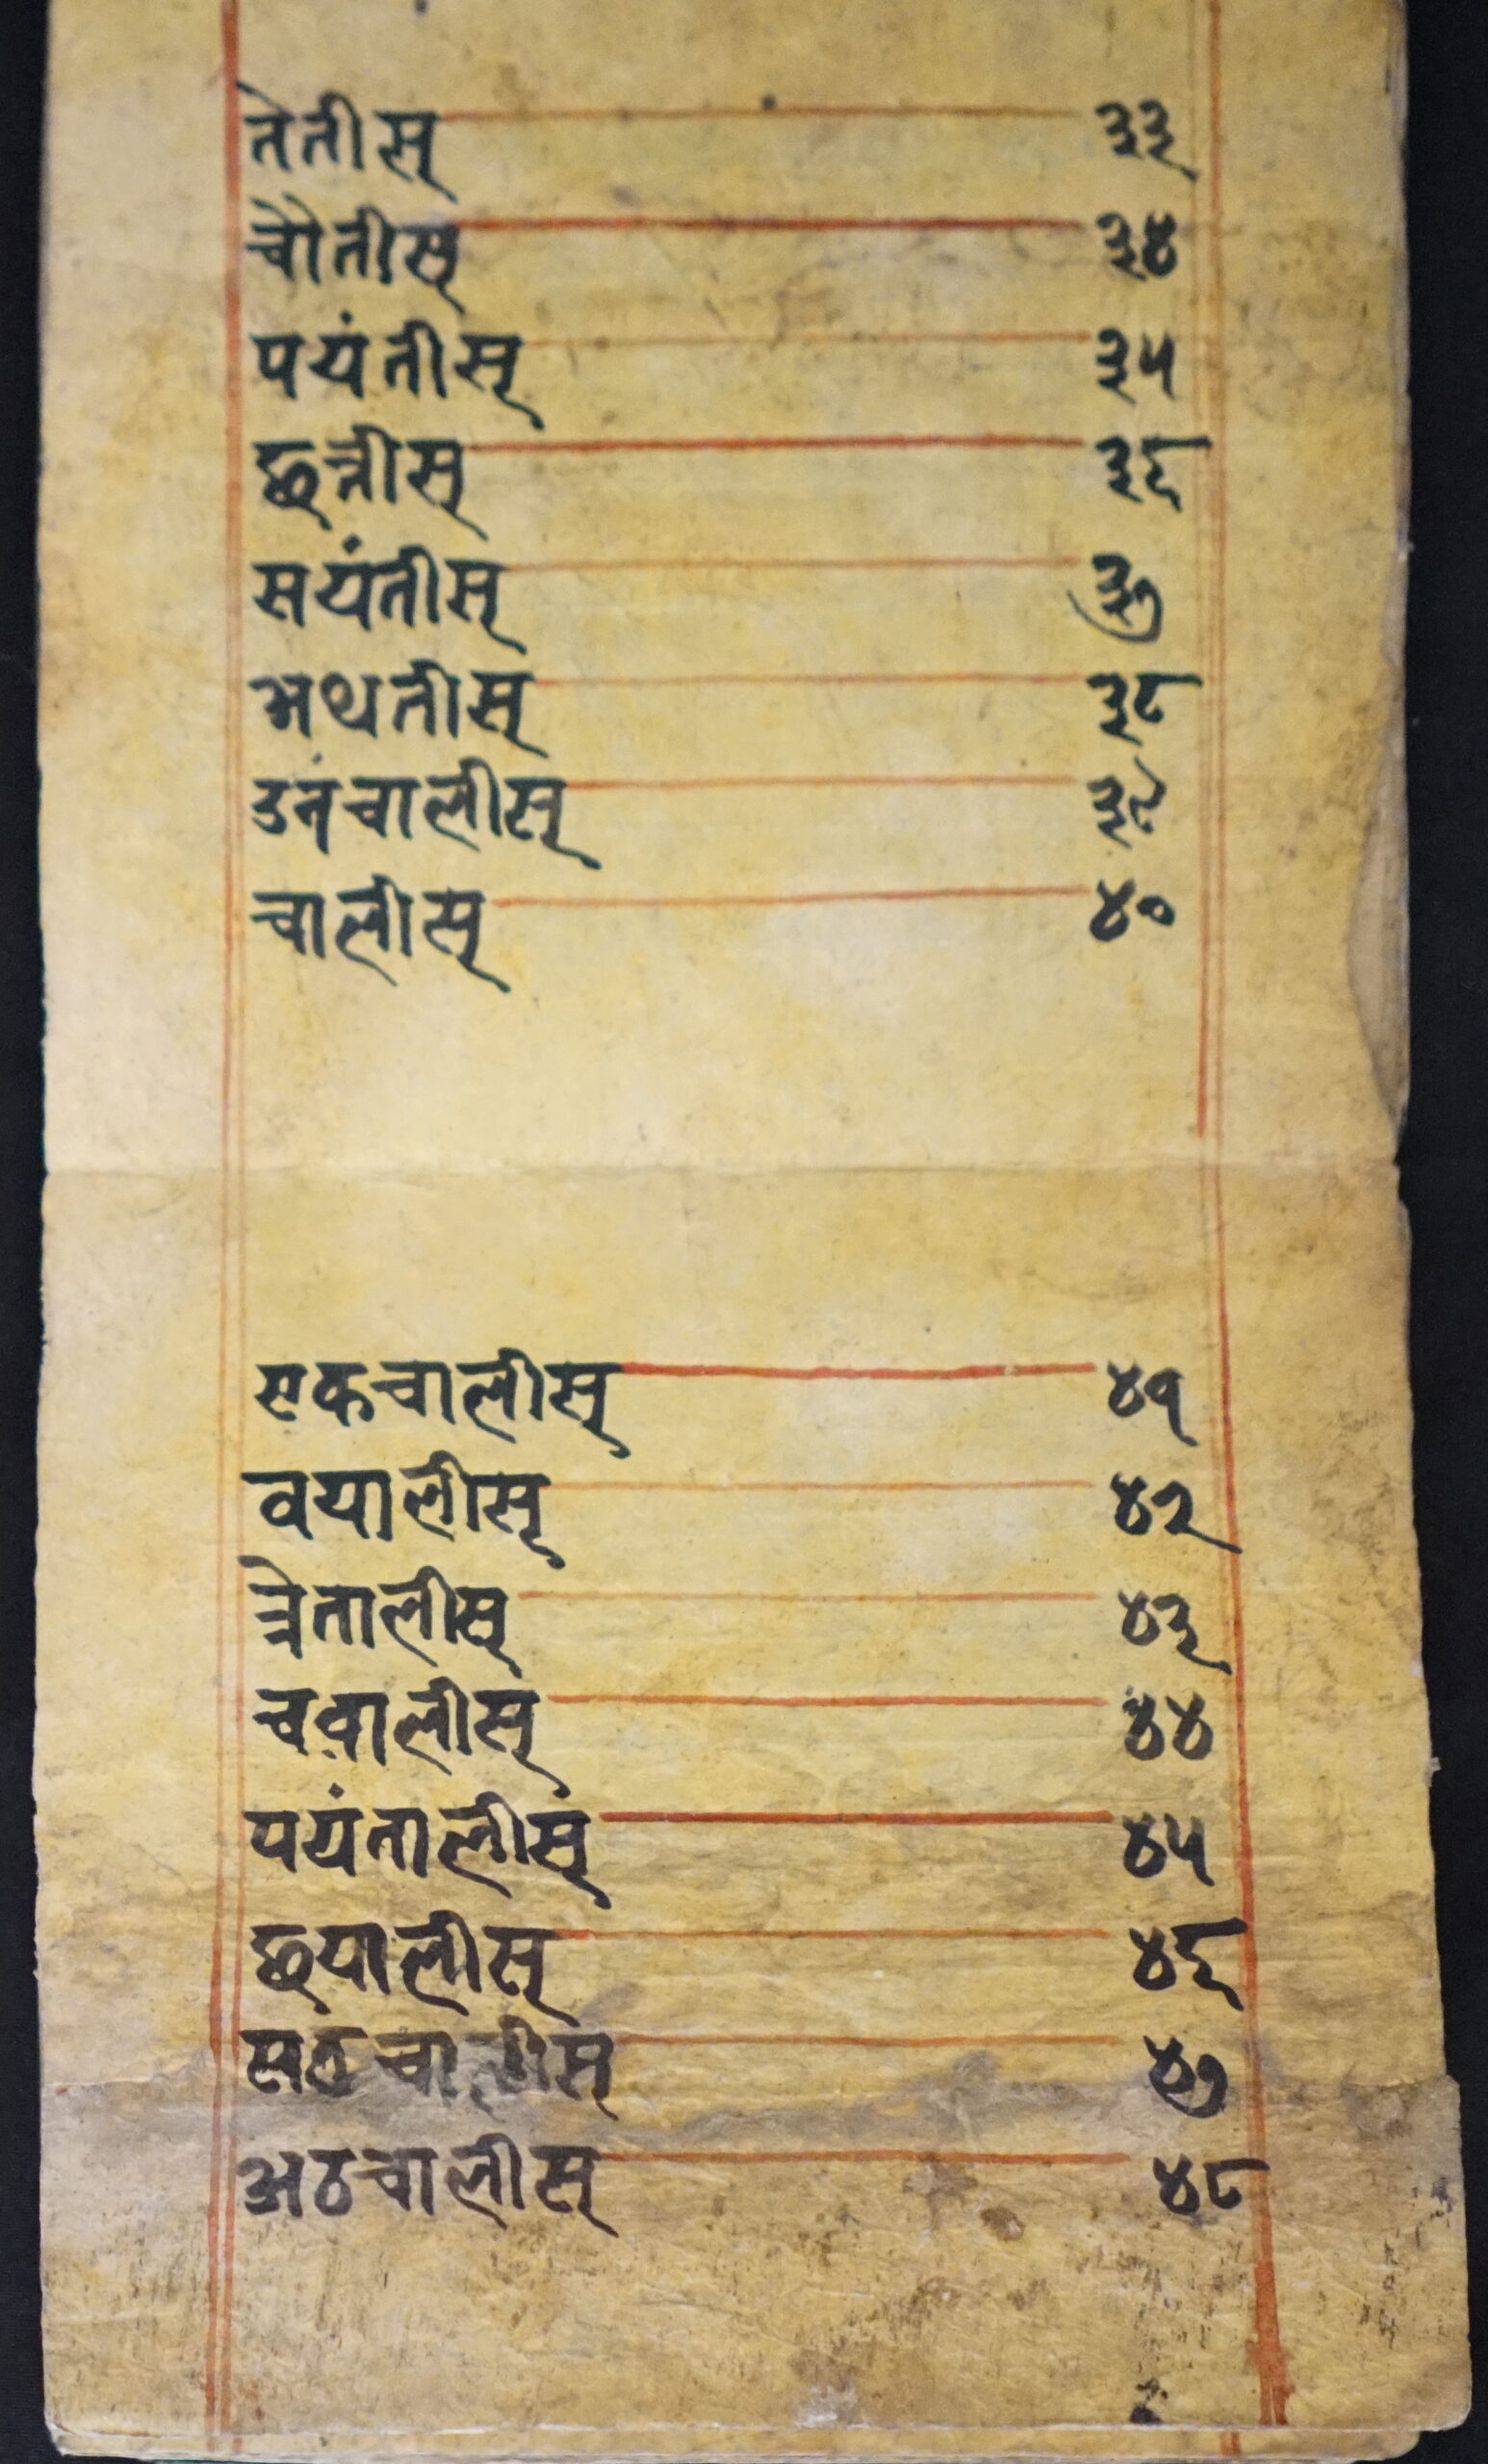 तेतीस् ३३
चौतीस् ३४
पयंतीस् ३५
छत्रीस् ३६
सयंतीस् ३७
अथतीस् ३८
उनंचालीस् ३९
चालीस् ४०
एकचालीस् ४१
वयालीस् ४२
त्रेतालीस् ४३
चवालीस् ४४
पयंतालीस् ४५
छयालीस् ४६
सतचालीस् ४७
अठचालीस् ४८